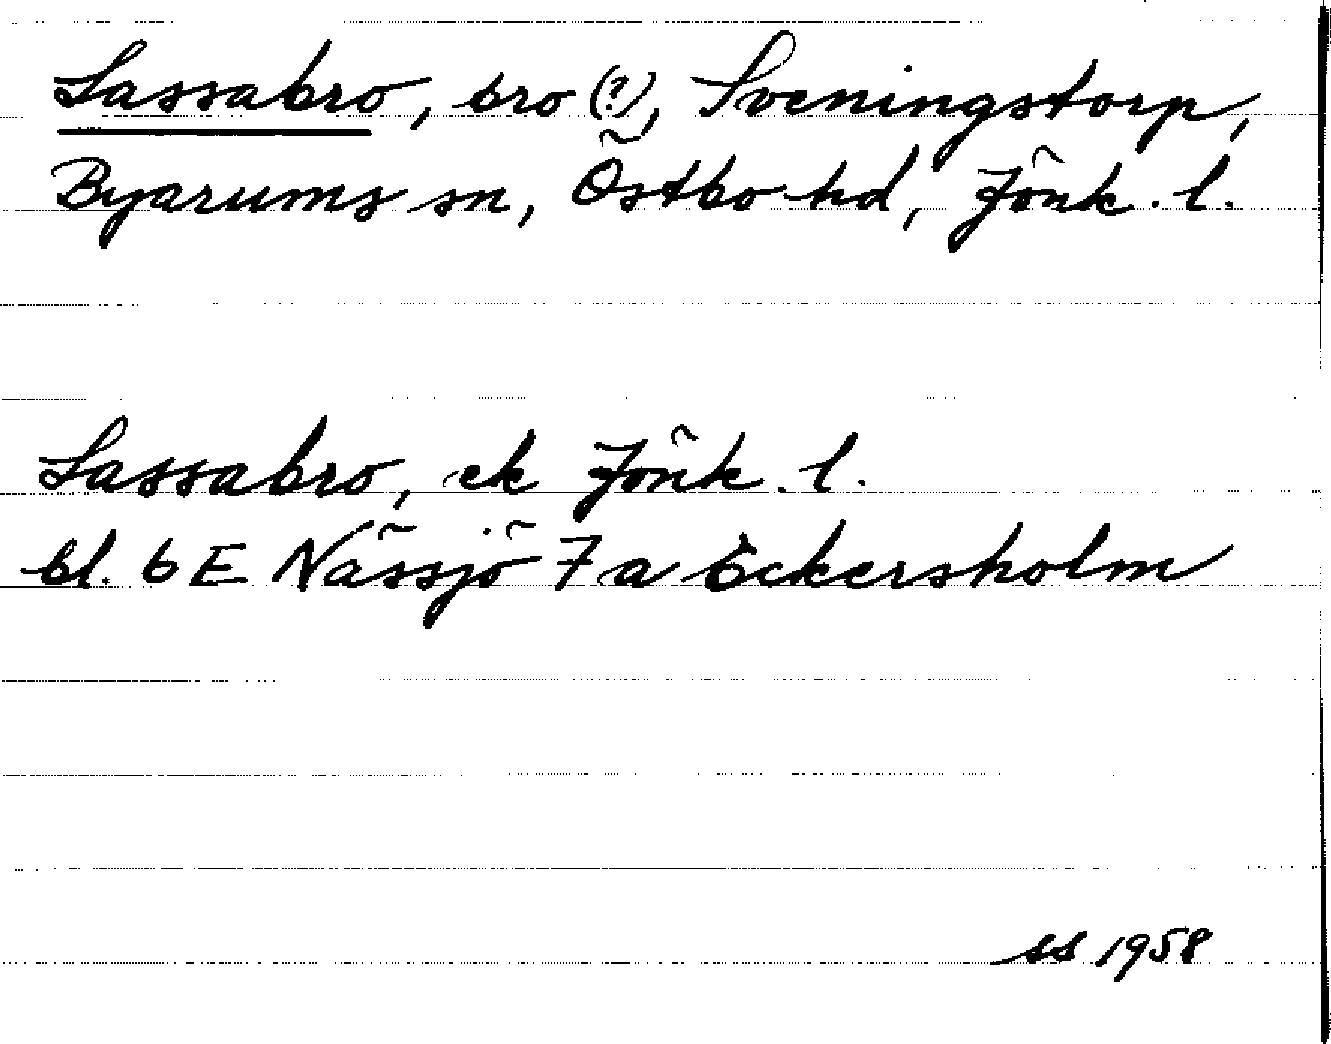 Lassabro, bro (?), Sveningstorp,
Byarums sn, Östbo hd, Jönk. l.
Lassabro, ek Jönk. l.
bl. 6 E Nässjö 7 a Eckersholm
ss 1958